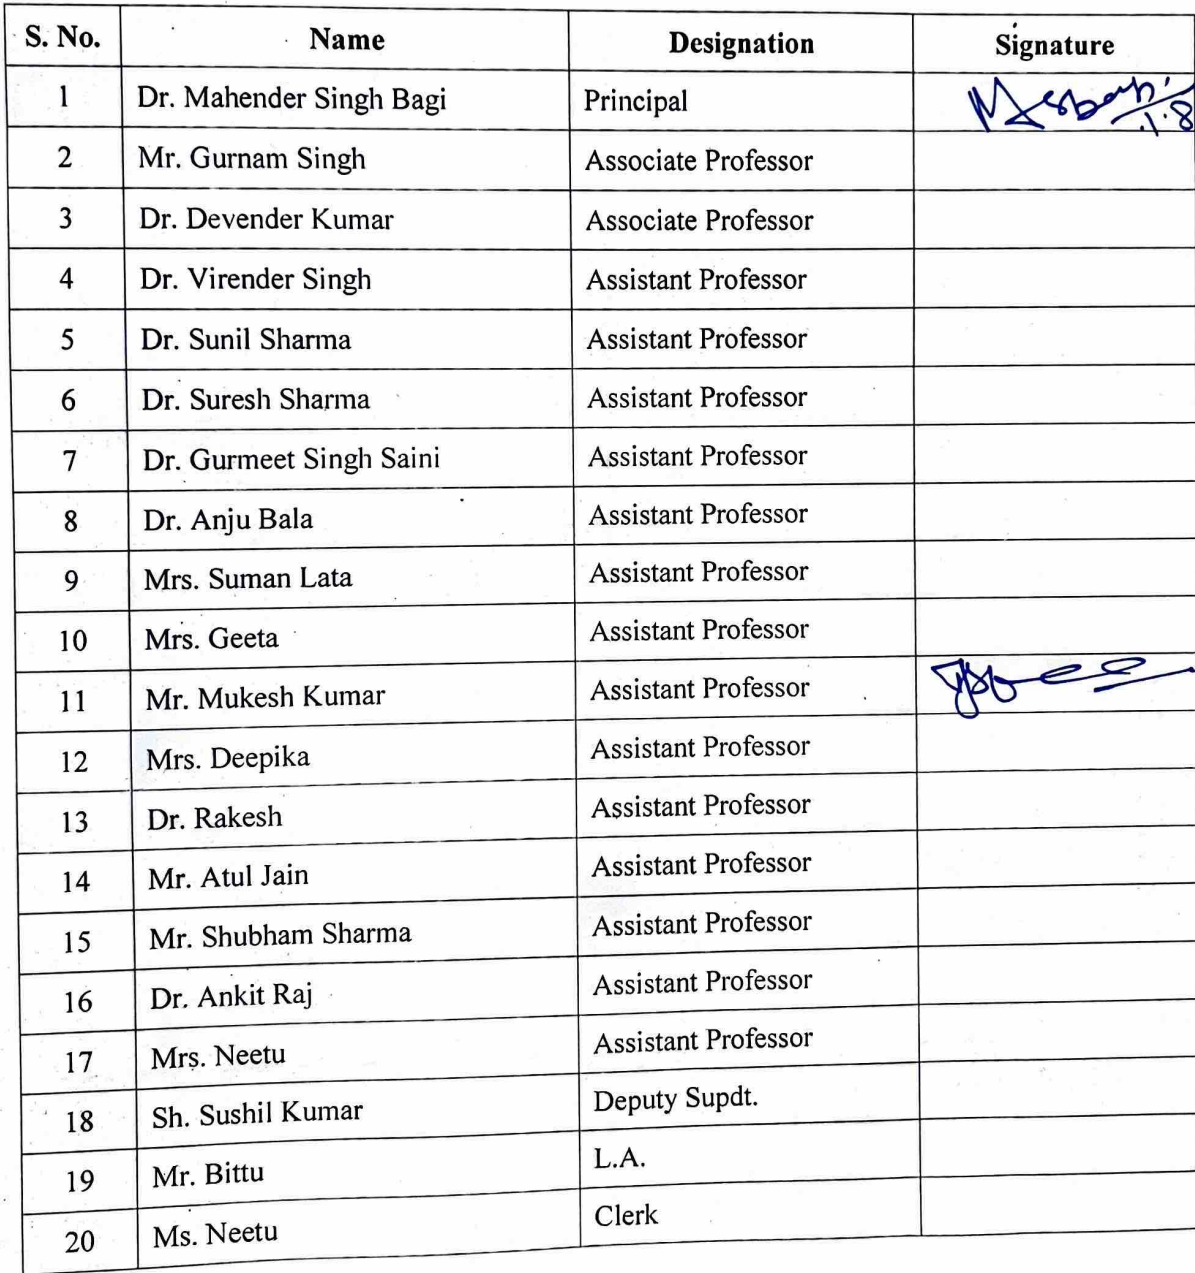 S. No. Name Designation Signature
1 Dr. Mahender Singh Bagi Principal
2 Mr. Gurnam Singh Associate Professor
3 Dr. Devender Kumar Associate Professor
4 Dr. Virender Singh Assistant Professor
5 Dr. Sunil Sharma Assistant Professor
6 Dr. Suresh Sharma Assistant Professor
7 Dr. Gurmeet Singh Saini Assistant Professor
8 Dr. Anju Bala Assistant Professor
9 Mrs. Suman Lata Assistant Professor
10 Mrs. Geeta Assistant Professor
11 Mr. Mukesh Kumar Assistant Professor
12 Mrs. Deepika Assistant Professor
13 Dr. Rakesh Assistant Professor
14 Mr. Atul Jain Assistant Professor
15 Mr. Shubham Sharma Assistant Professor
16 Dr. Ankit Raj Assistant Professor
17 Mrs. Neetu Assistant Professor
18 Sh. Sushil Kumar Deputy Supdt.
19 Mr. Bittu L.A.
20 Ms. Neetu Clerk